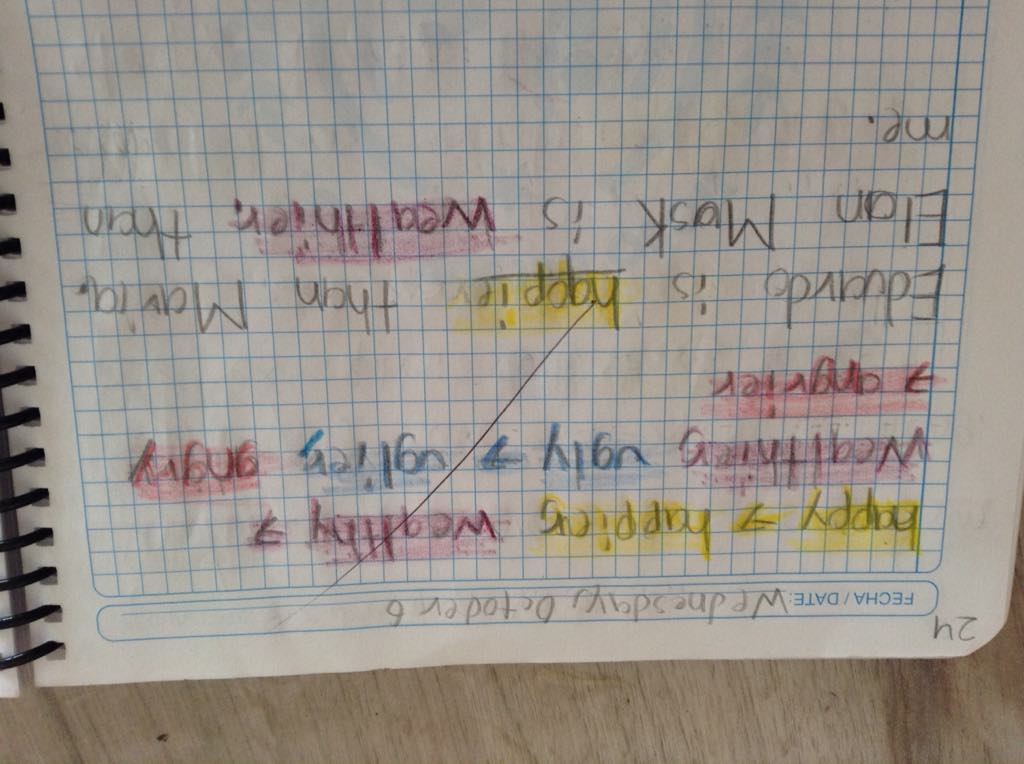 24
FECHA / DATE: Wednesday, Octoder 6
happy → happier wealthy →
wealthier ugly → uglier angry
→ angrier
Eduardo is happier than Maria.
Elon Musk is wealthier than
me.